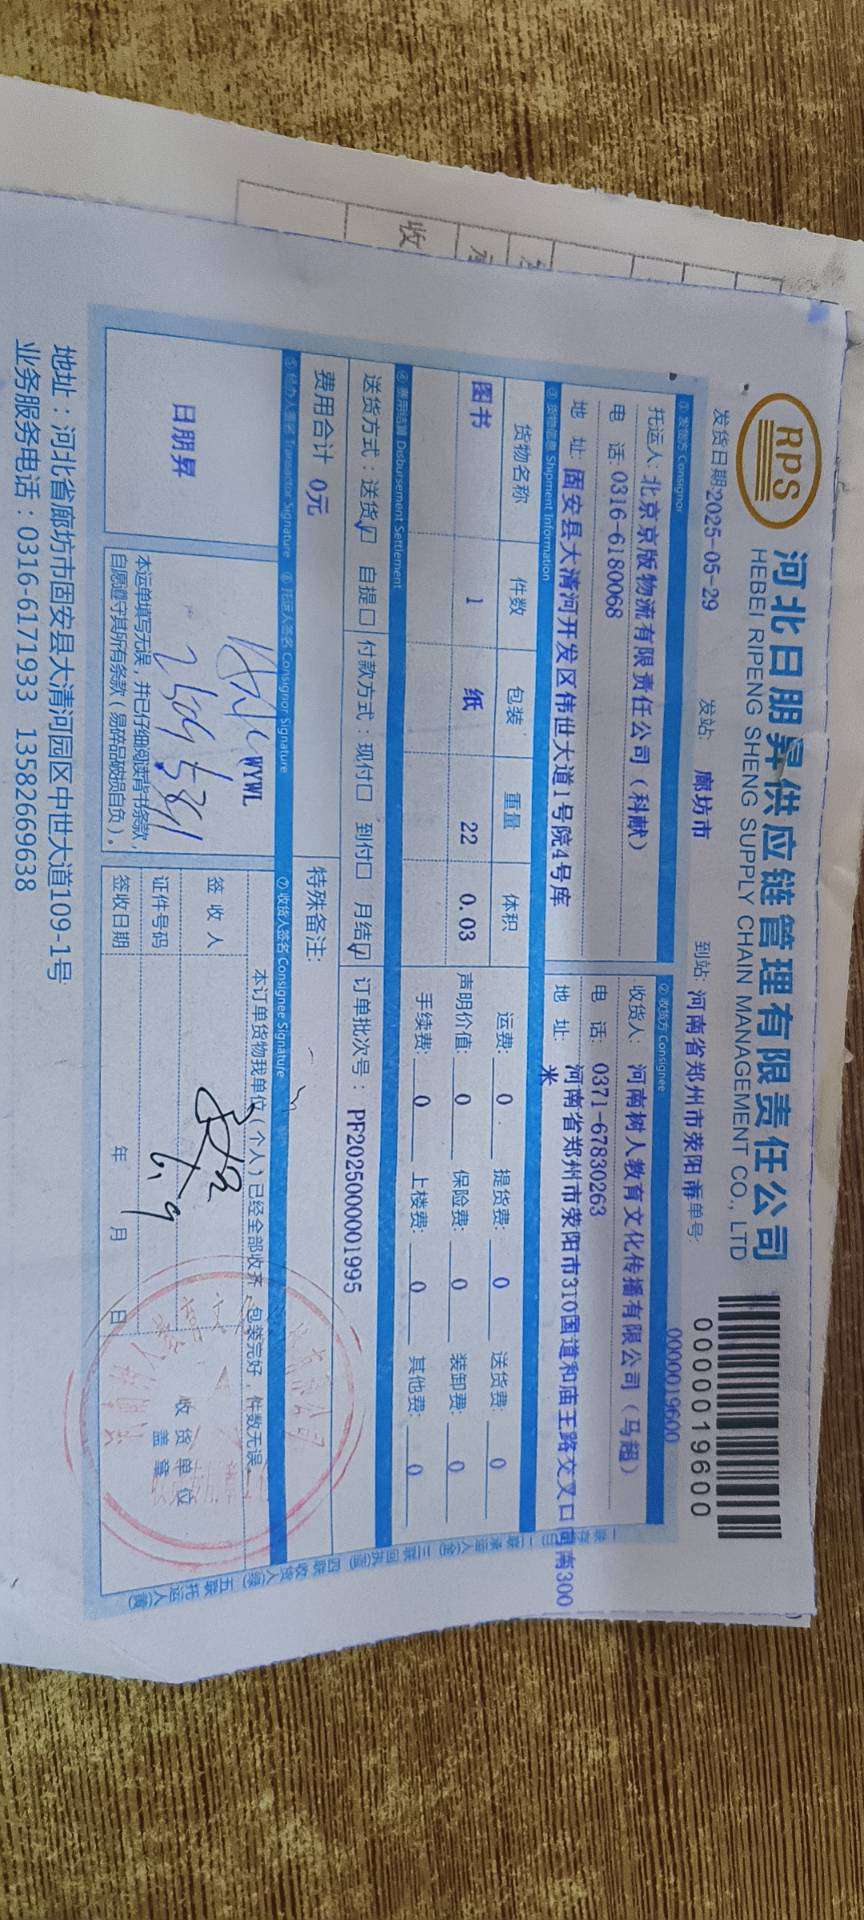 收
RPS
河北日朋昇供应链管理有限责任公司
HEBEI RIPENG SHENG SUPPLY CHAIN MANAGEMENT CO., LTD
0000019600
发货日期:2025-05-29 发站: 廊坊市 到站: 河南省郑州市荥阳市 运单号: 0000019600
① 发货方 Consignor
② 收货方 Consignee
托运人: 北京京版物流有限责任公司（科献）
收货人: 河南树人教育文化传播有限公司（马超）
电 话: 0316-6180068
电 话: 0371-67830263
地 址: 固安县大清河开发区伟世大道1号院4号库
地 址: 河南省郑州市荥阳市310国道和庙王路交叉口西南300
米
③ 货物信息 Shipment Information
货物名称 件数 包装 重量 体积
图书 1 纸 22 0.03
运费: 0 提货费: 0 送货费: 0
声明价值: 0 保险费: 0 装卸费: 0
手续费: 0 上楼费: 0 其他费: 0
④ 费用结算 Disbursement Settlement
送货方式：送货☑ 自提□ 付款方式：现付□ 到付□ 月结☑ 订单批次号： PF2025000001995
费用合计 0元
特殊备注:
⑤ 经办人签名 Transactor Signature
⑥ 托运人签名 Consignor Signature
⑦ 收货人签名 Consignee Signature
日朋昇
WYWL
本运单填写无误，并已仔细阅读背书条款，
自愿遵守其所有条款（易碎品破损自负）。
本订单货物我单位（个人）已经全部收齐，包装完好，件数无误。
签 收 人
证件号码 6.9
签收日期 年 月 日
收货单位
盖 章
地址：河北省廊坊市固安县大清河园区中世大道109-1号
业务服务电话：0316-6171933 13582669638